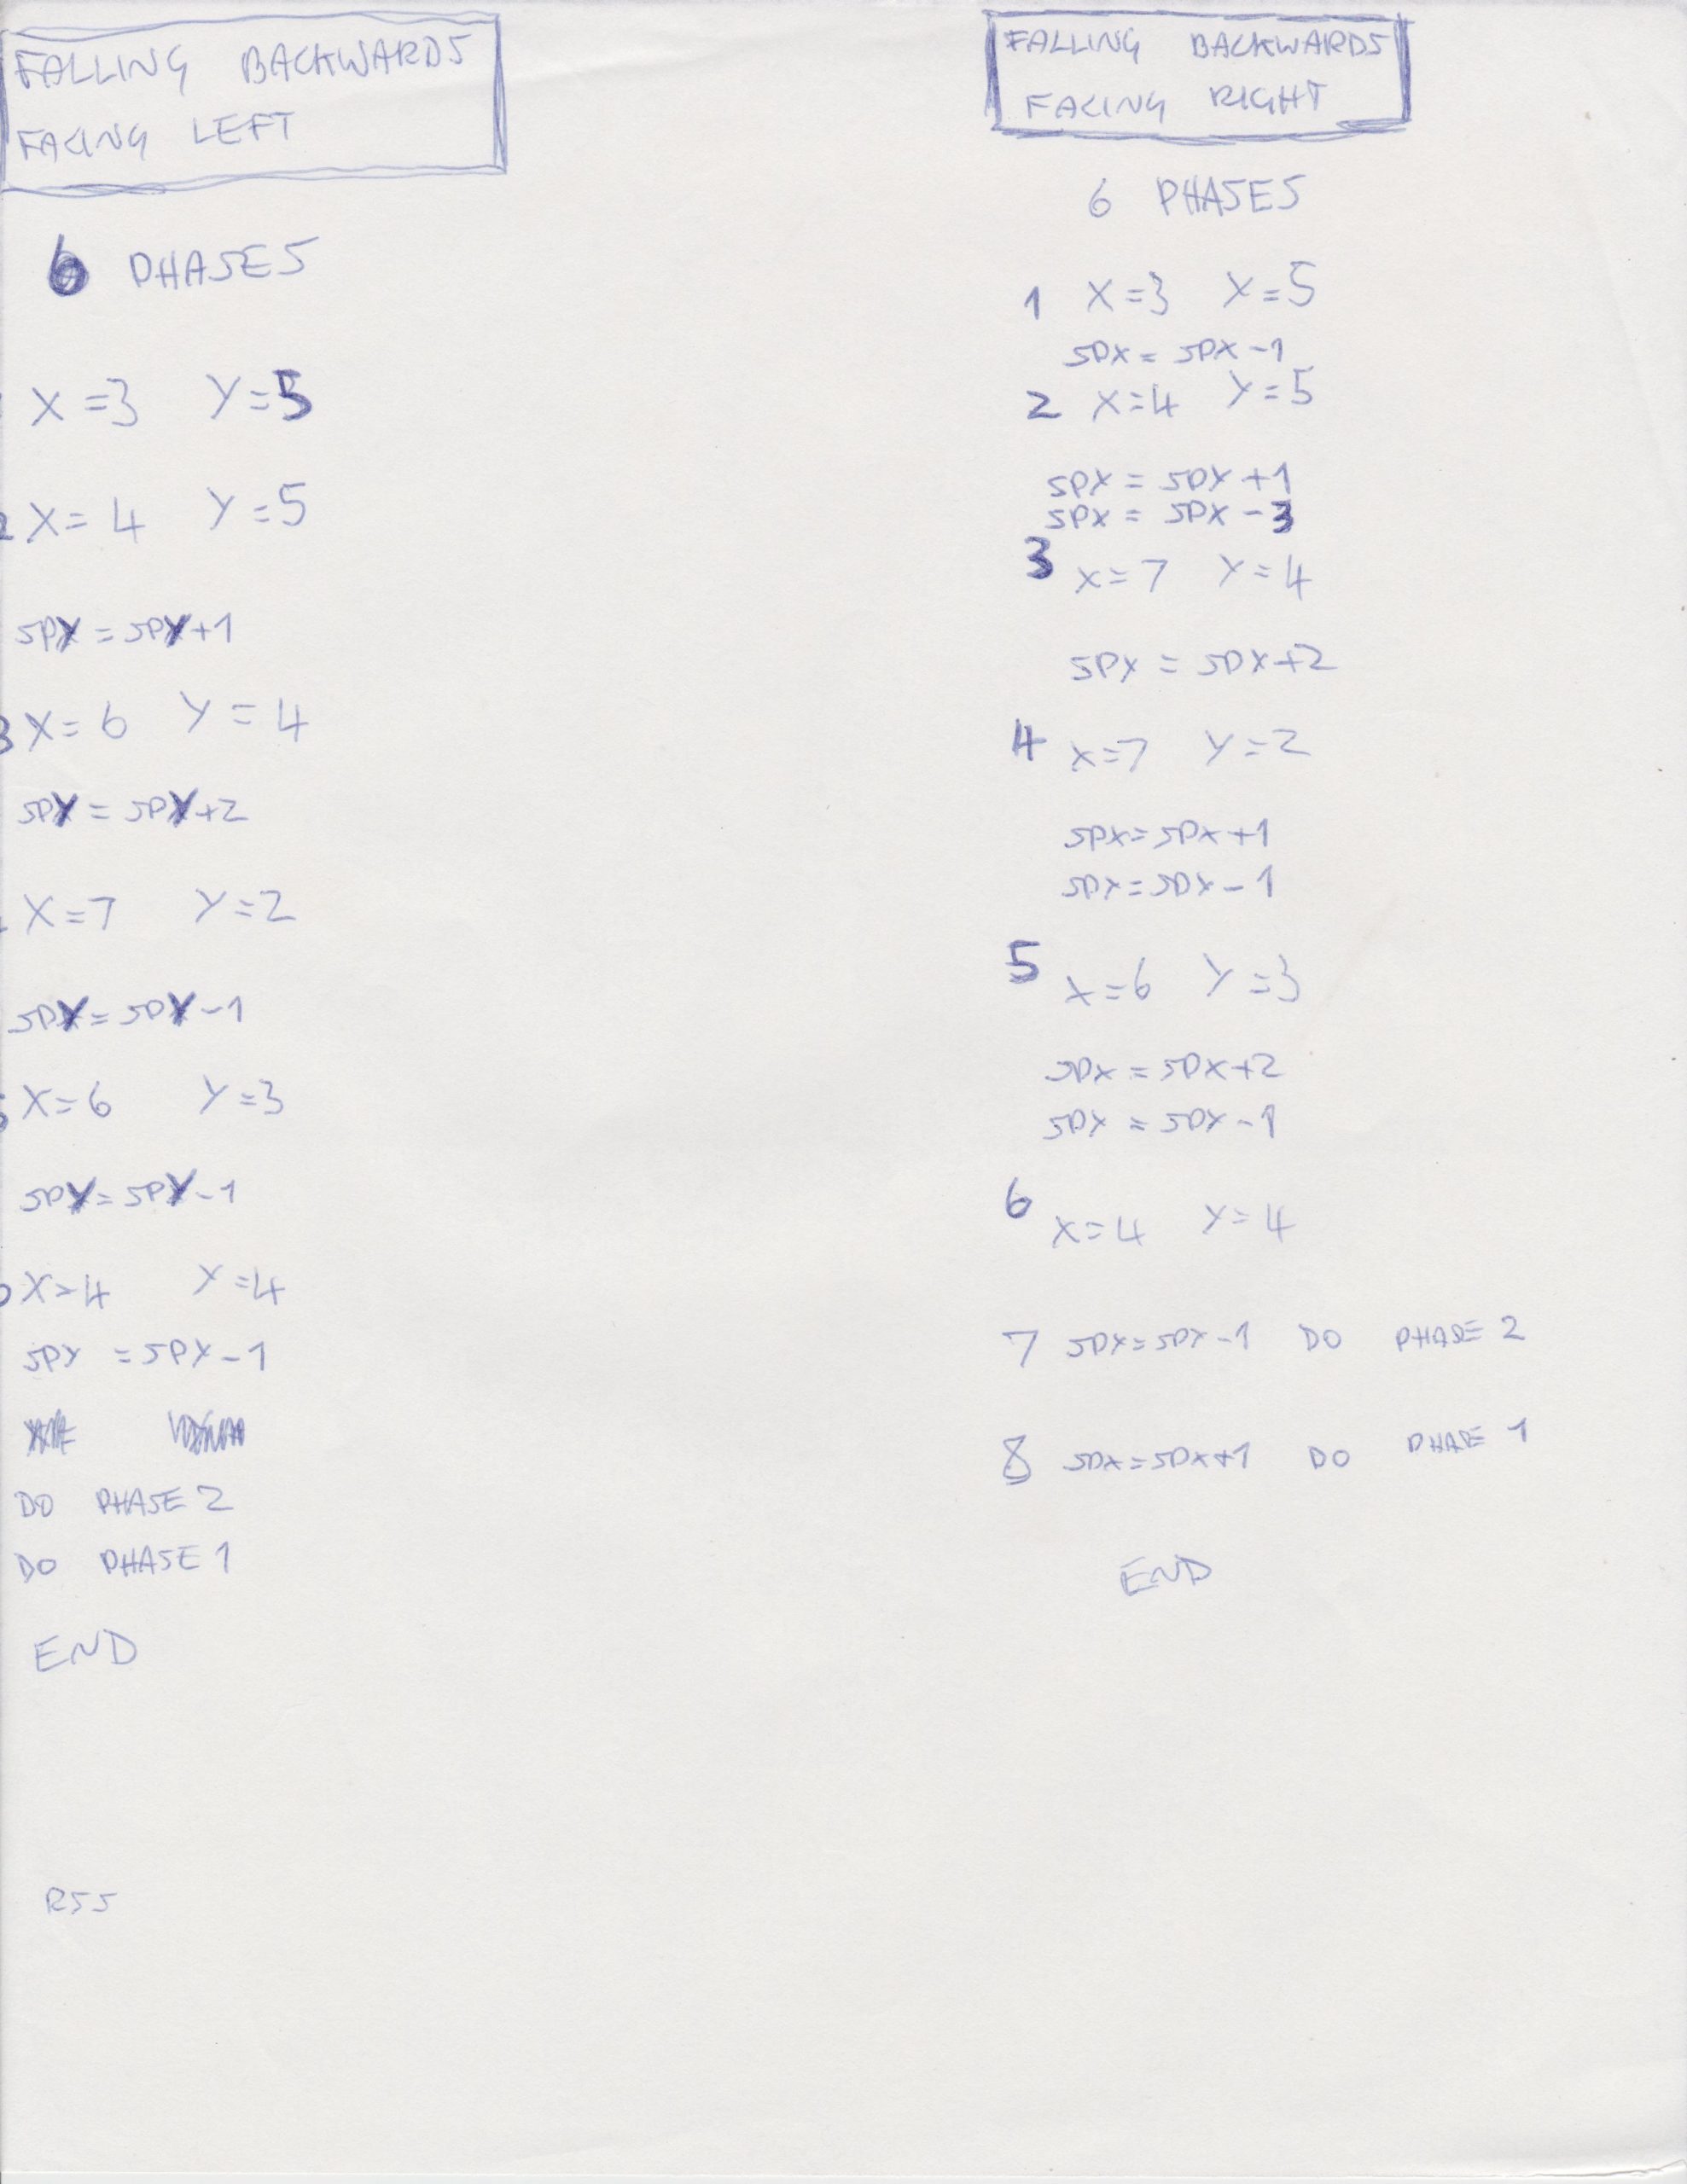 FALLING BACKWARDS
FACING LEFT
6 PHASES
X=3 Y=5
2 X=4 Y=5
SPY=SPY+1
3 X=6 Y=4
SPY=SPY+2
X=7 Y=2
SPY=SPY-1
X=6 Y=3
SPY=SPY-1
X=4 Y=4
SPY=SPY-1
DO PHASE 2
DO PHASE 1
END
RSS
FALLING BACKWARDS
FACING RIGHT
6 PHASES
1 X=3 Y=5
SPX=SPX-1
2 X=4 Y=5
SPY=SPY+1
SPX=SPX-3
3 X=7 Y=4
SPY=SPY+2
4 X=7 Y=2
SPX=SPX+1
SPY=SPY-1
5 X=6 Y=3
SPX=SPX+2
SPY=SPY-1
6 X=4 Y=4
7 SPY=SPY-1 DO PHASE 2
8 SPX=SPX+1 DO PHASE 1
END